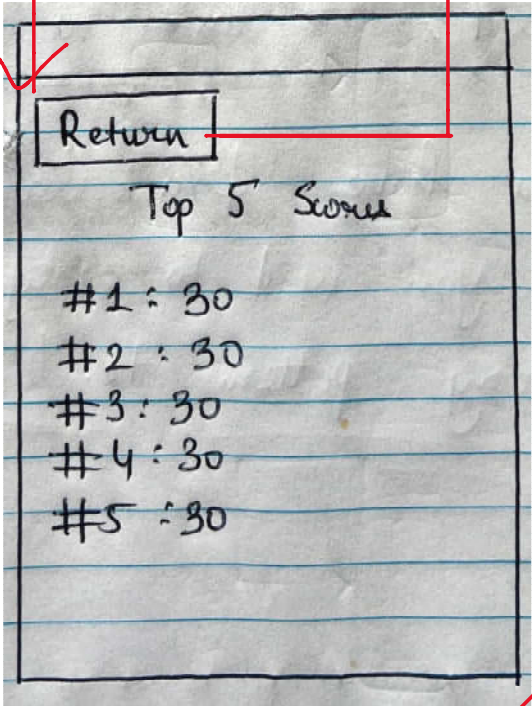 Return
Top 5 Scores
#1 : 30
#2 : 30
#3 : 30
#4 : 30
#5 : 30